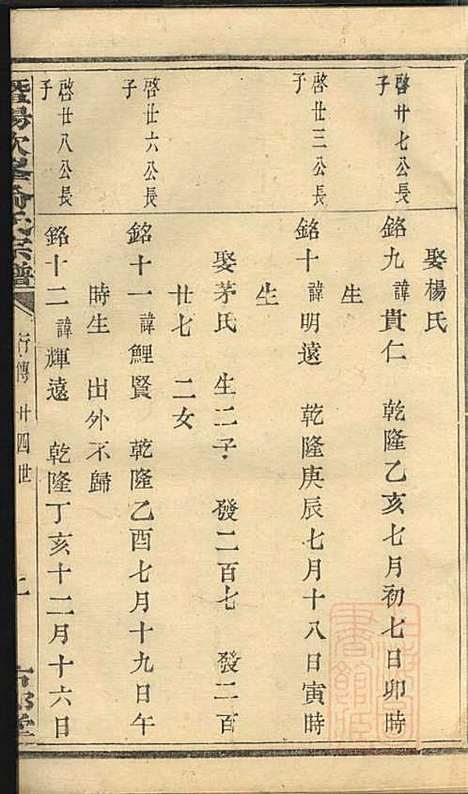 娶楊氏
啓廿七公長子
銘九 諱貴仁 乾隆乙亥七月初七日卯時
生
啓廿三公長子
銘十 諱明遠 乾隆庚辰七月十八日寅時
生
娶茅氏 生二子 發二百七 發二百
廿七 二女
啓廿六公長子
銘十一 諱鯉賢 乾隆乙酉七月十九日午
時生 出外不歸
啓廿八公長子
銘十二 諱輝遠 乾隆丁亥十二月十六日
暨陽次峯俞氏宗譜
行傳 廿四世